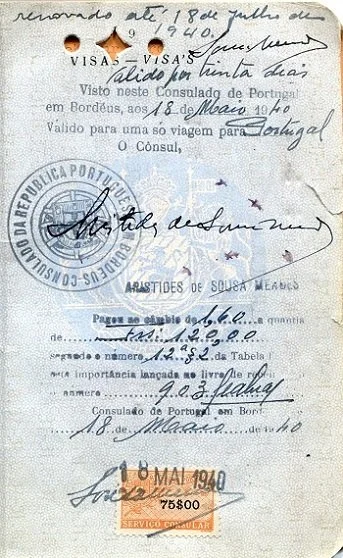 renovado até 18 de Julho de
1940.
9
Sousa Mendes
VISAS – VISA'S
Valido por trinta dias
Visto neste Consulado de Portugal
em Bordéus, aos 18 de Maio 1940
Válido para uma so viagem para Portugal
O Cônsul,
CONSULADO DA REPUBLICA PORTUGUESA EM BORDEUS
Aristides de Sousa Mendes
ARISTIDES DE SOUSA MENDES
Pagou ao câmbio de 1,60 a quantia
de Frs: 120,00
segundo o número 12ª §2 da Tabela
importância lançada no livro de
número 903
Consulado de Portugal em Bord
18 de Maio de 1940
18 MAI 1940
75$00
SERVIÇO CONSULAR